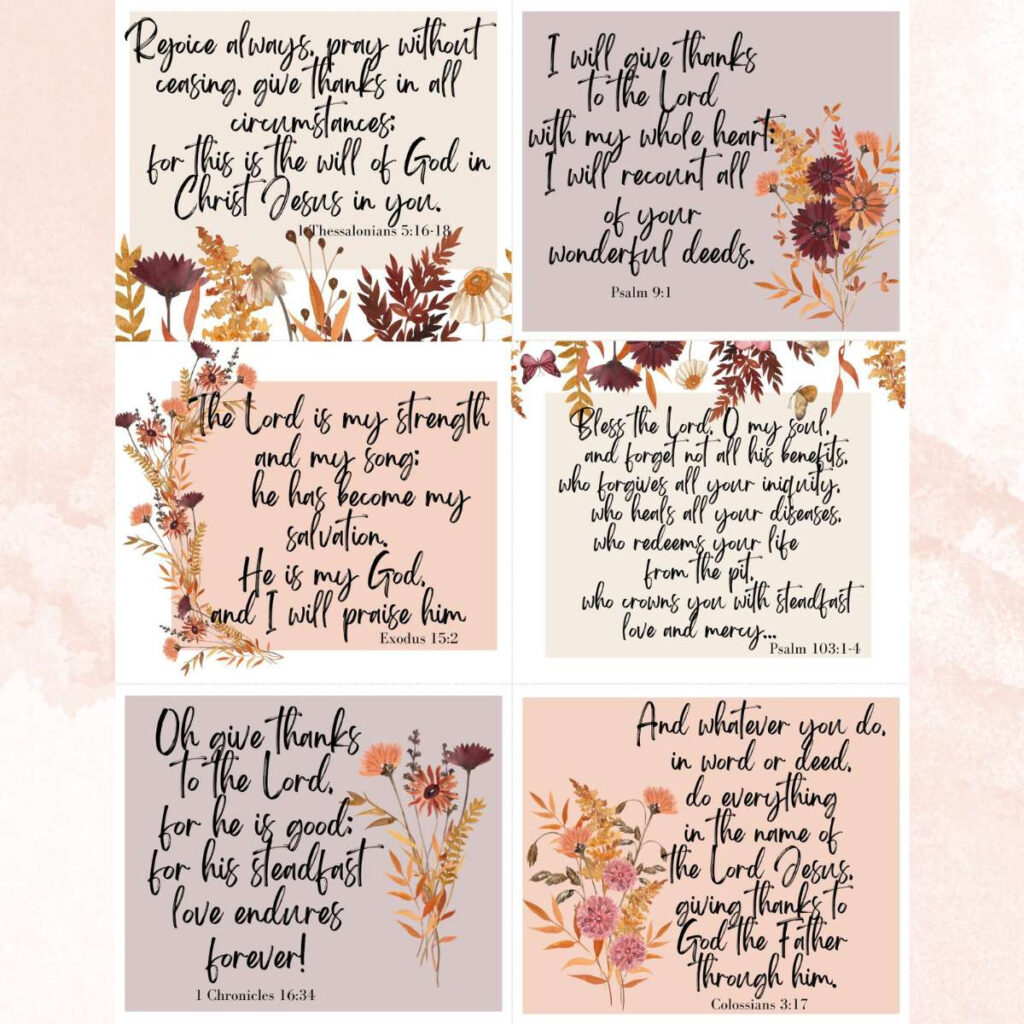 Rejoice always, pray without
ceasing, give thanks in all
circumstances;
for this is the will of God in
Christ Jesus in you.
1 Thessalonians 5:16-18
I will give thanks
to the Lord
with my whole heart;
I will recount all
of your
wonderful deeds.
Psalm 9:1
The Lord is my strength
and my song;
he has become my
salvation.
He is my God,
and I will praise him
Exodus 15:2
Bless the Lord, O my soul,
and forget not all his benefits,
who forgives all your iniquity,
who heals all your diseases,
who redeems your life
from the pit,
who crowns you with steadfast
love and mercy...
Psalm 103:1-4
Oh give thanks
to the Lord,
for he is good;
for his steadfast
love endures
forever!
1 Chronicles 16:34
And whatever you do,
in word or deed,
do everything
in the name of
the Lord Jesus,
giving thanks to
God the Father
through him.
Colossians 3:17